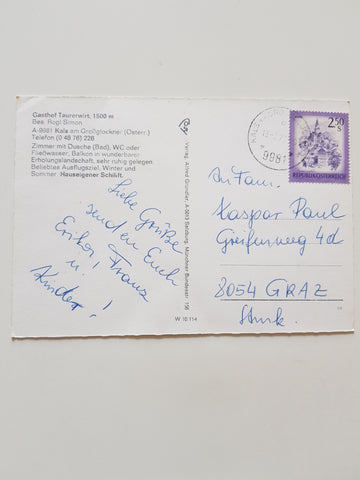 Gasthof Taurerwirt, 1500 m
Bes. Rogl Simon
A-9981 Kals am Großglockner (Österr.)
Telefon (0 48 76) 226
Zimmer mit Dusche (Bad), WC oder
Fließwasser, Balkon in wunderbarer
Erholungslandschaft, sehr ruhig gelegen.
Beliebtes Ausflugsziel, Winter und
Sommer. Hauseigener Schilift.
Liebe Grüße
senden Euch
Erika, Franz
u.
Kinder!
Verlag Alfred Gründler, A-5013 Salzburg, Münchner Bundesstr. 156
W 10.114
9981
2.50
S
REPUBLIK ÖSTERREICH
An Fam.
Kaspar Paul
Greifenweg 4d
8054 GRAZ
Stmk.